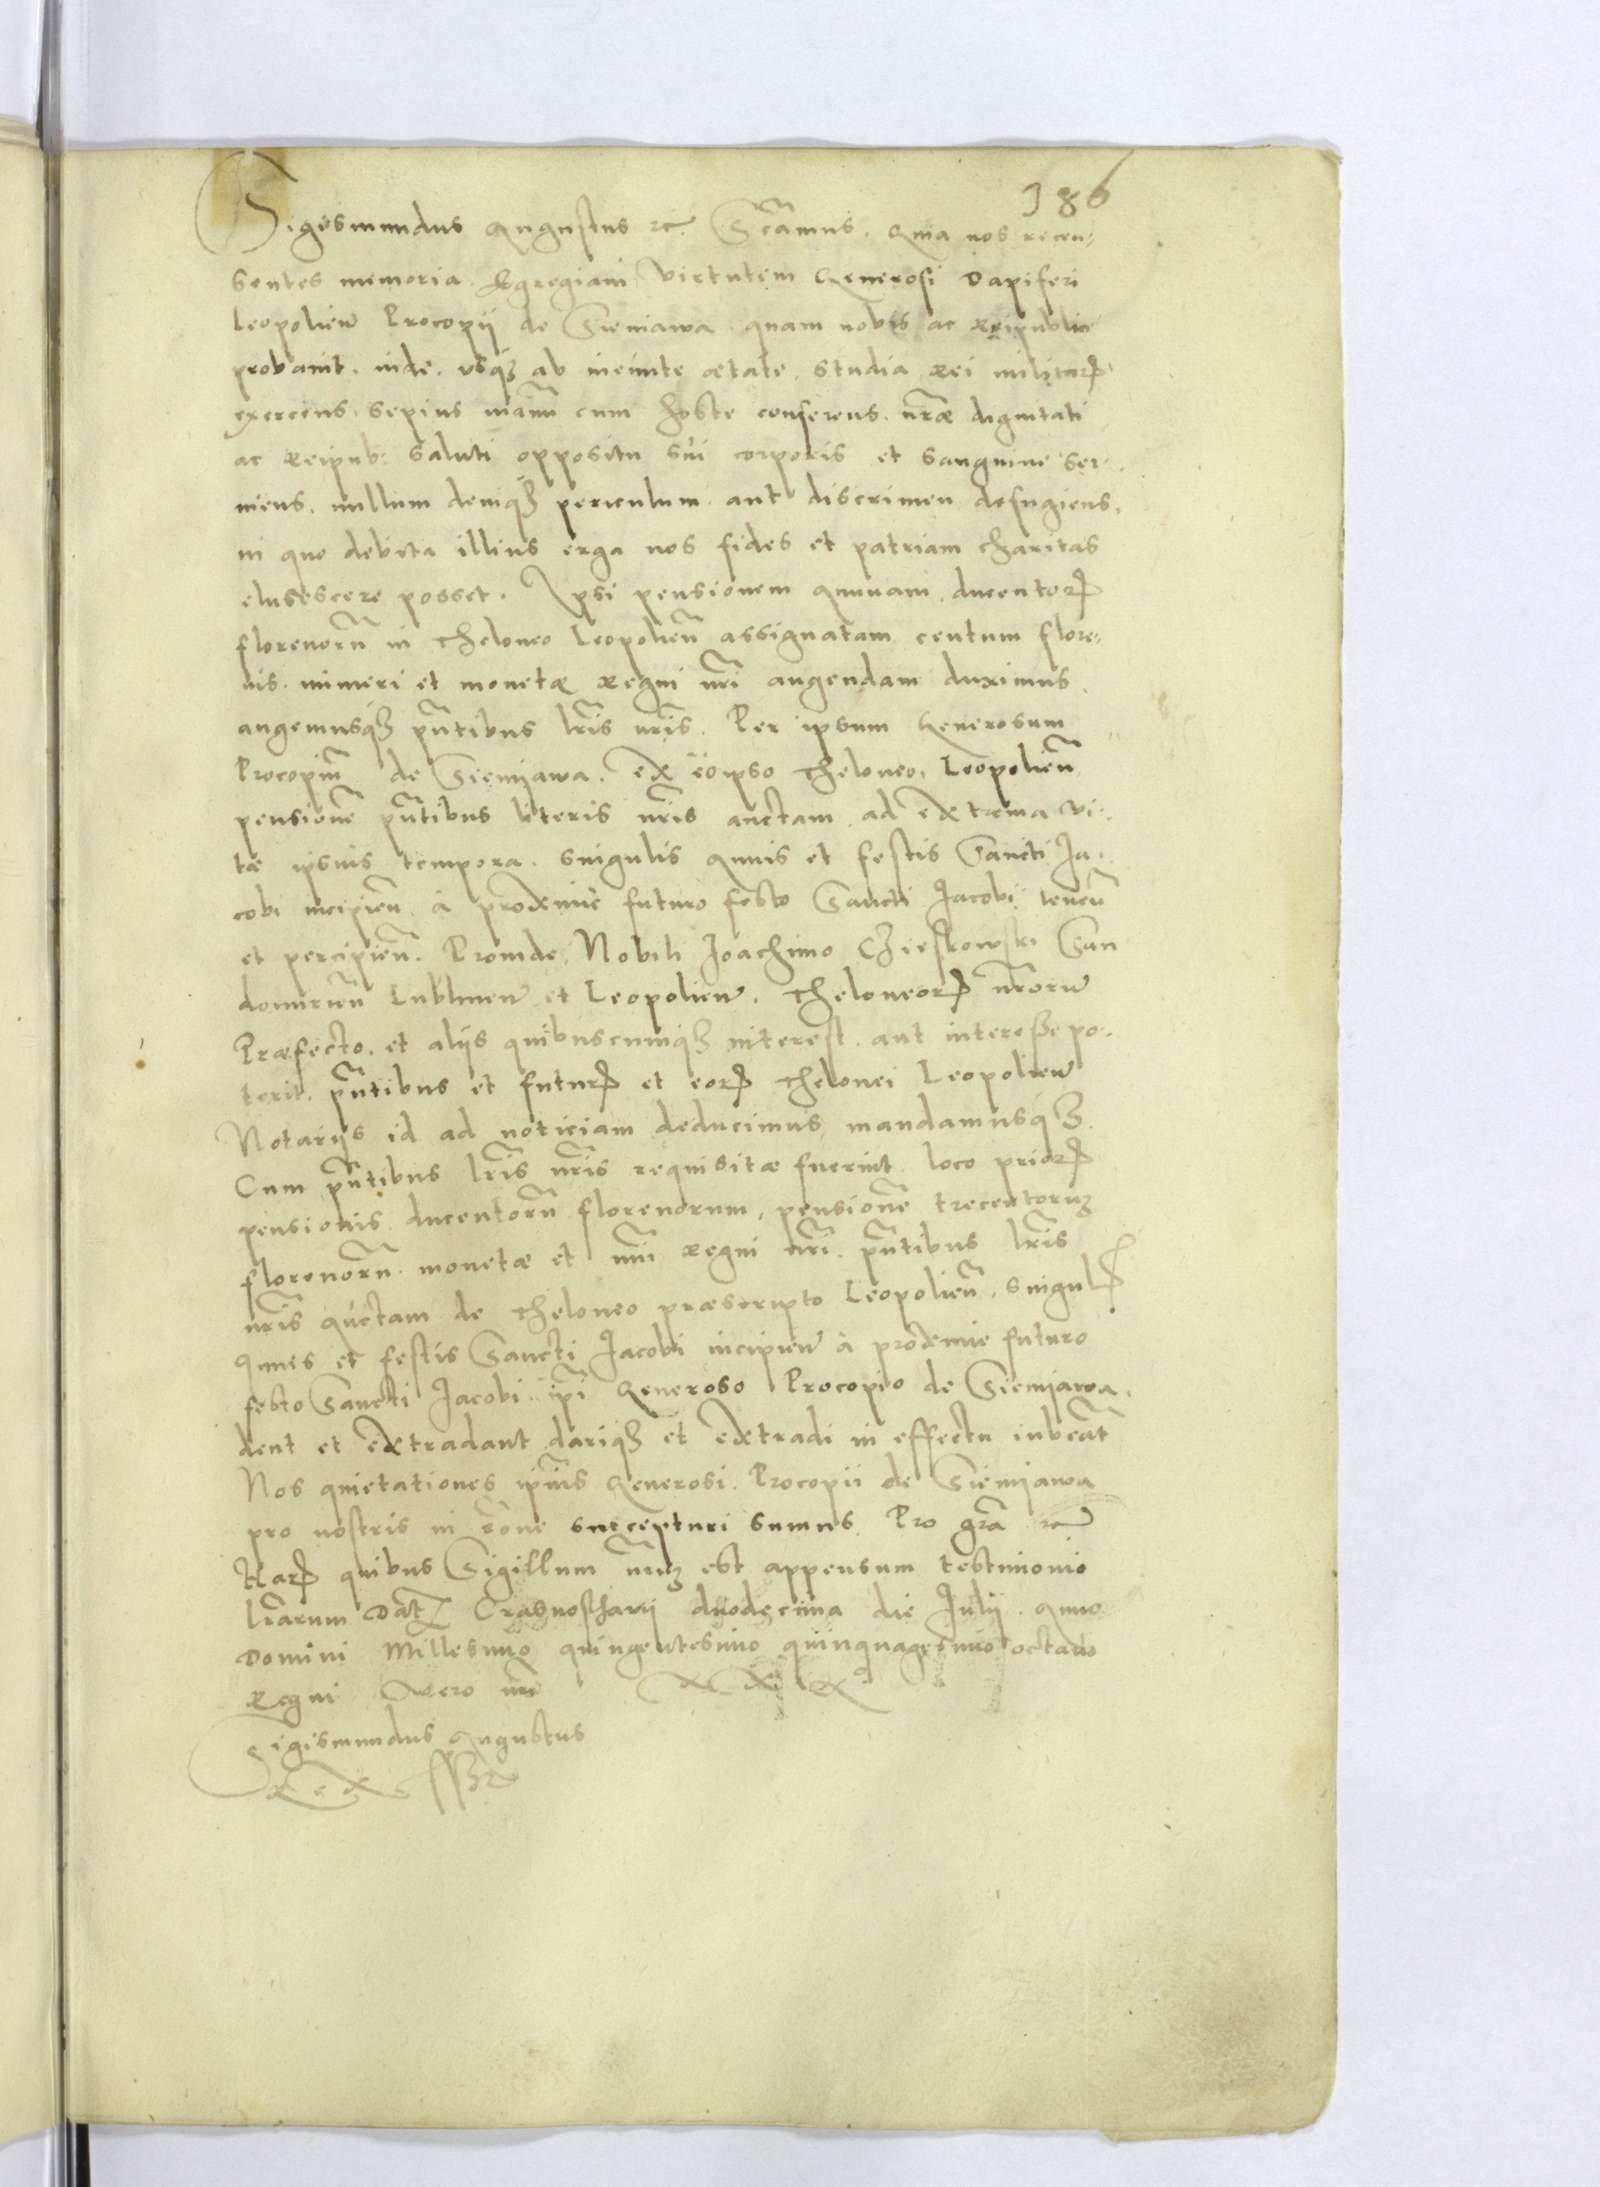 186
Sigismundus Augustus etc Sctamus. Quia nos recen-
sentes memoria Egregiam virtutem Generosi Dapiferi
Leopolien Procopij de Sieniawa quam nobis ac Reipublicae
probavit. inde usq3 ab ineunte aetate studia rei militar
exercens sepius manu cum hoste conferens. nrae dignitati
ac Reipub: saluti oppositu sui corporis et sanguine ser-
viens. nullum deniq3 periculum aut discrimen defugiens.
in quo debita illius erga nos fides et patriam charitas
eluscescere posset. Ipsi pensionem annuam ducentor
florenoru in theloneo Leopolien assignatam centum flore-
nis numeri et monetae regni nri augendam duximus
augemusq3 pntibus lris nris. Per ipsum Generosum
Procopiu de Sieniawa. ex eoipso theloneo Leopolien
pensione pntibus literis nris auctam ad extrema vi-
tae ipsius tempora. singulis annis et festis Sancti Ja-
cobi incipien à proxime futuro festo Sancti Jacobi tenen
et percipien. Proinde Nobili Joachimo Czieskowski San
domirien Lublinen et Leopolien. theloneor nroru
Praefecto. et alijs quibuscunq3 interest aut interesse po-
terit. pntibus et futur et eor thelonei Leopolien
Notarijs id ad noticiam deducimus mandamusq3
Cum pntibus lris nris requisitae fuerint loco prior
pensionis ducentoru florenorum, pensione trecentoru3
florenoru monetae et nui regni nri pntibus lris
nris auctam de theloneo praescripto Leopolien. singul
annis et festis Sancti Jacobi incipien à proxime futuro
festo Sancti Jacobi ipi Generoso Procopio de Sieniawa.
dent et extradant dariq3 et extradi in effectu iubeat
Nos quietationes ipius Generosi Procopii de Sieniawa
pro nostris in rone suscepturi sumus Pro gra etc
Har quibus Sigillum nru3 est appensum testimonio
lrarum Dat Crasnostavij duodecima die Julij Anno
Domini Millesimo quingentesimo quinquagesimo octavo
Regni Vero nri XXIX
Sigismundus Augustus
Rex sspt